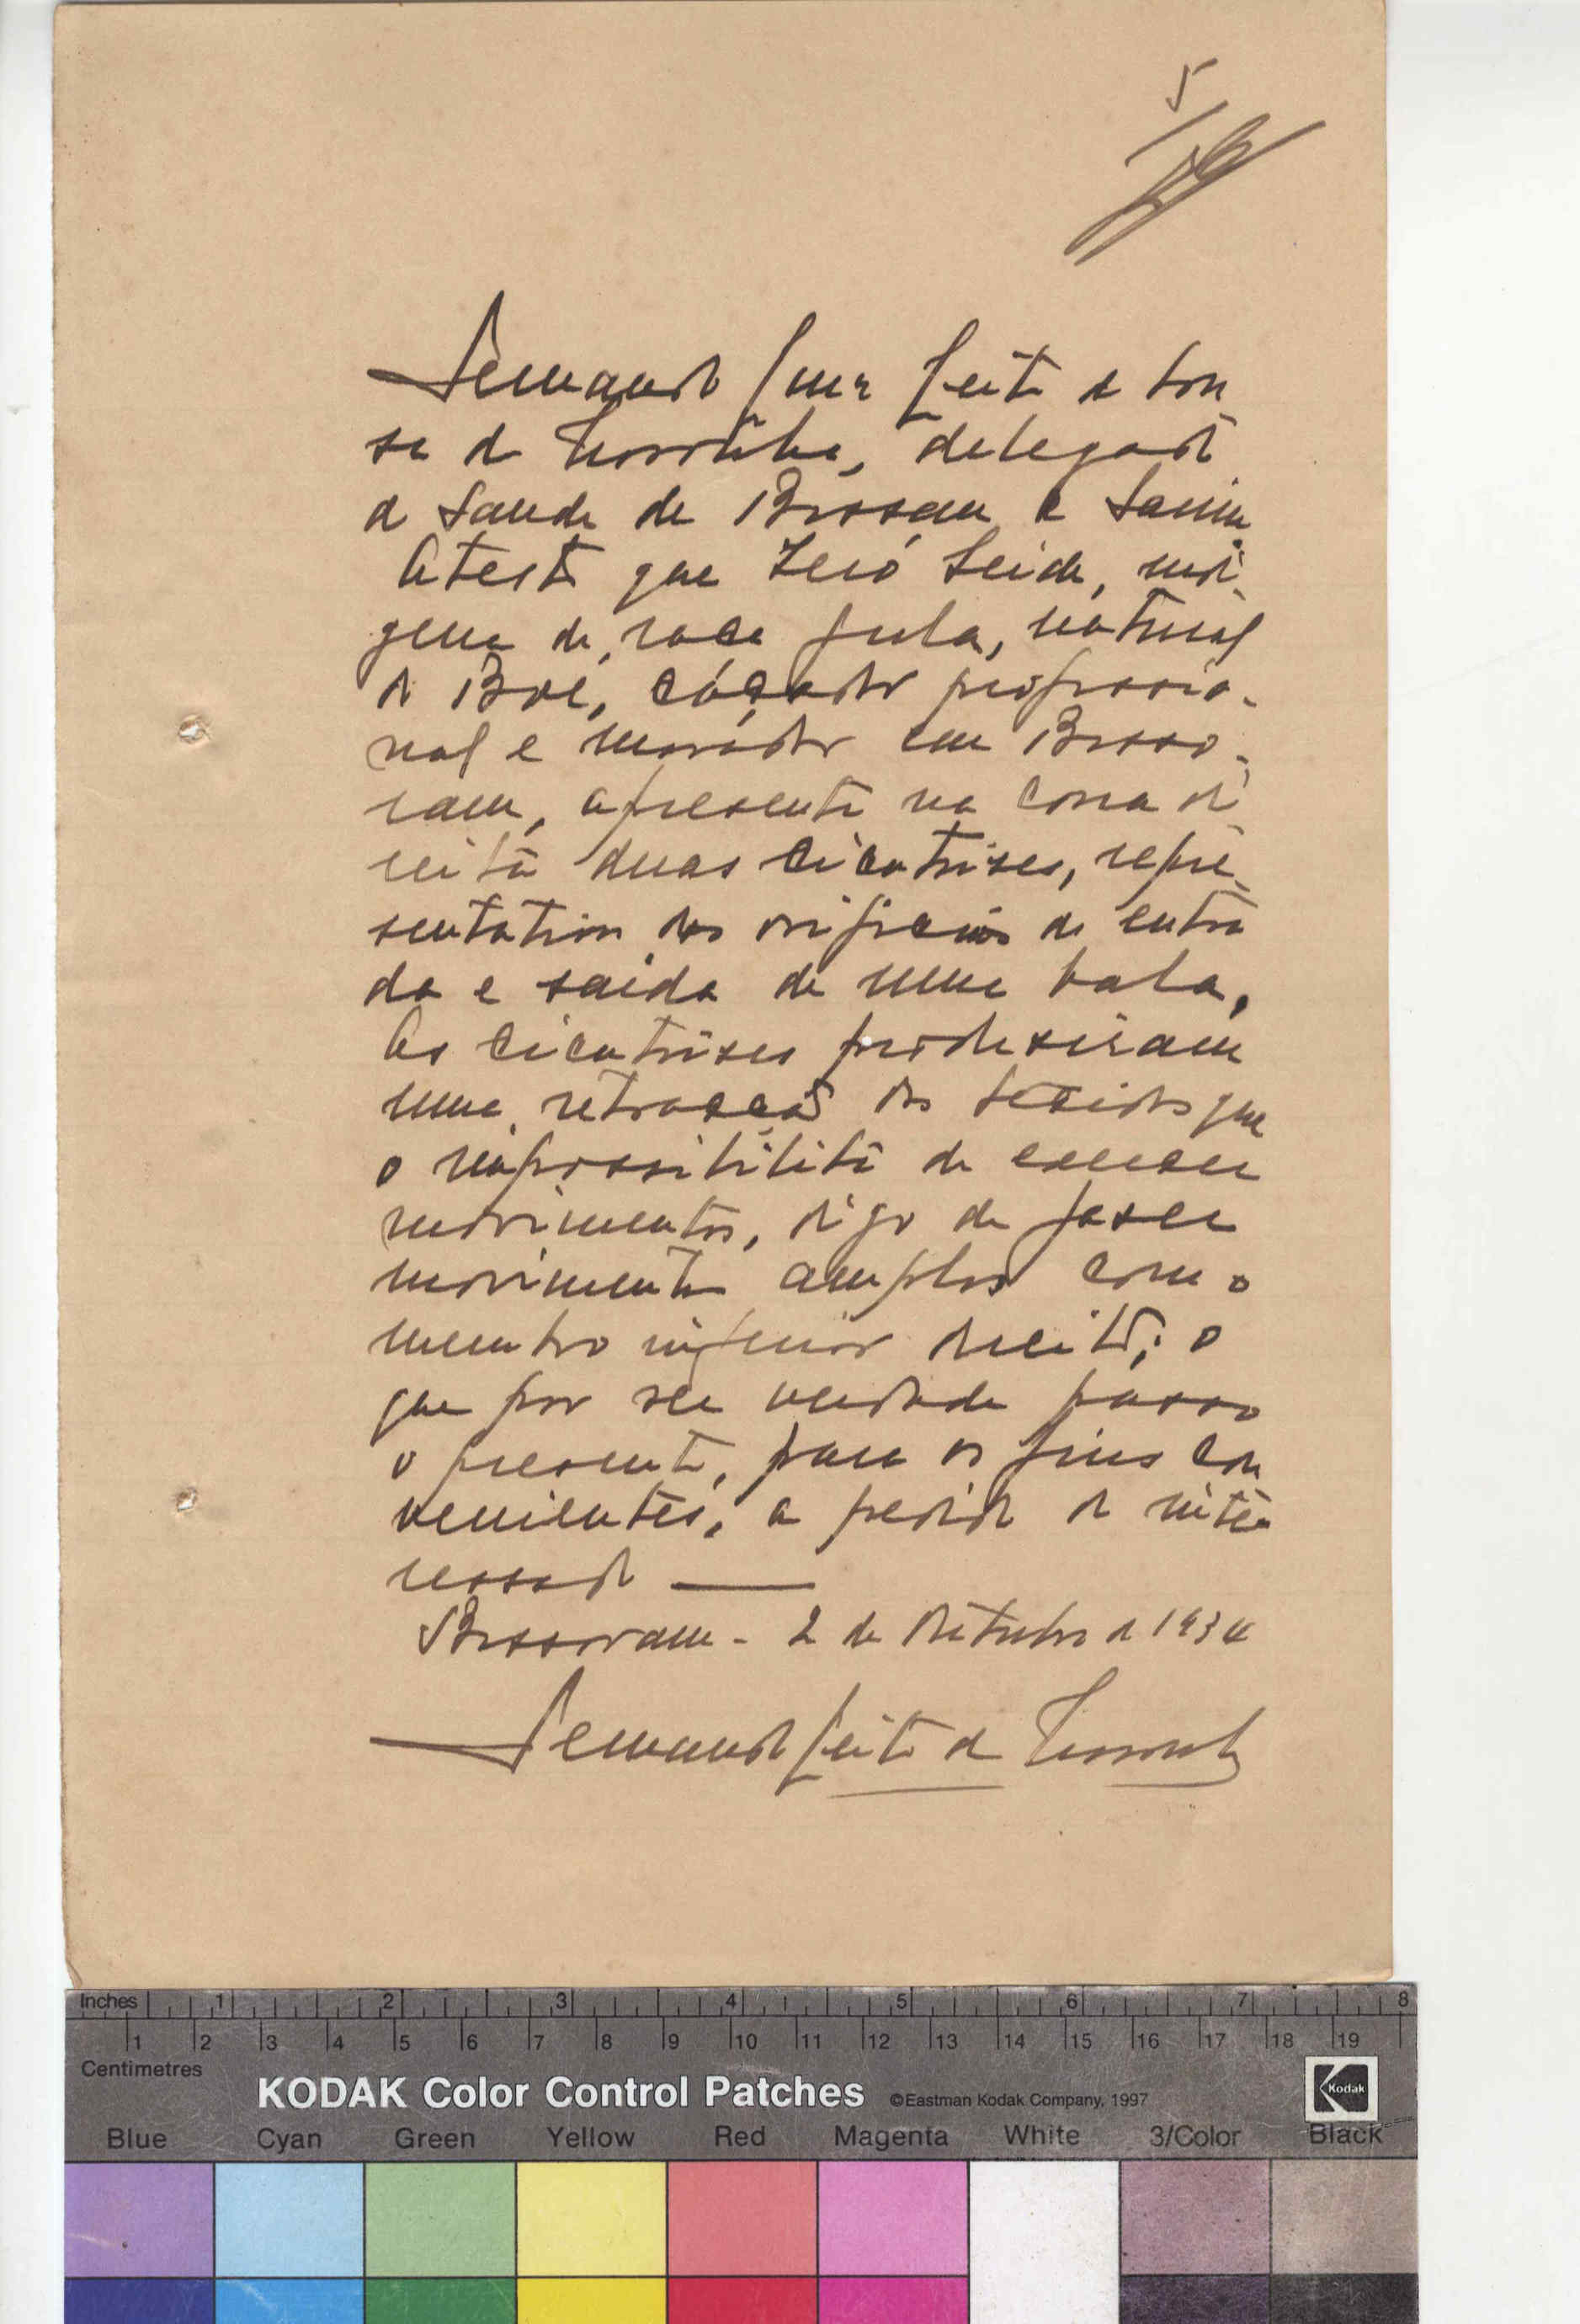 5
Fernando Leite de Sou
sa de Noronha, delegado
de Saude de Bissau e
Atesto que Seidi, indi
gena de raça fula, natural
de Boé, caçador profissio-
nal e morador em Bisso-
ram, apresenta na coxa di
reita duas cicatrises, repre-
sentativas dos orificios de entra
da e saida de uma bala.
As cicatrises produsiram
uma retracção dos tecidos que
o impossibilita de exercer
movimentos, digo de faser
movimentos amplos com o
membro inferior direito; o
que por ser verdade passo
o presente, para os fins con
venientes, a pedido do inte-
ressado ——
Bissoram - 2 de Outubro de 1934
Fernando Leite de Noronha
Inches 1 2 3 4 5 6 7 8
1 2 3 4 5 6 7 8 9 10 11 12 13 14 15 16 17 18 19
Centimetres
KODAK Color Control Patches ©Eastman Kodak Company, 1997 Kodak
Blue Cyan Green Yellow Red Magenta White 3/Color Black